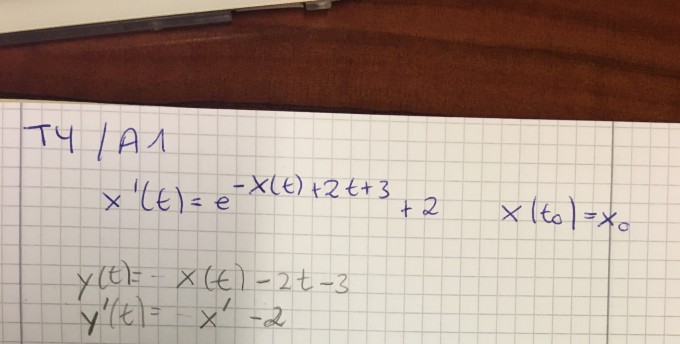 T4 / A1
x'(t) = e^{-x(t)+2t+3} + 2 x(t₀) = x₀
y(t) = x(t) - 2t - 3
y'(t) = x' - 2